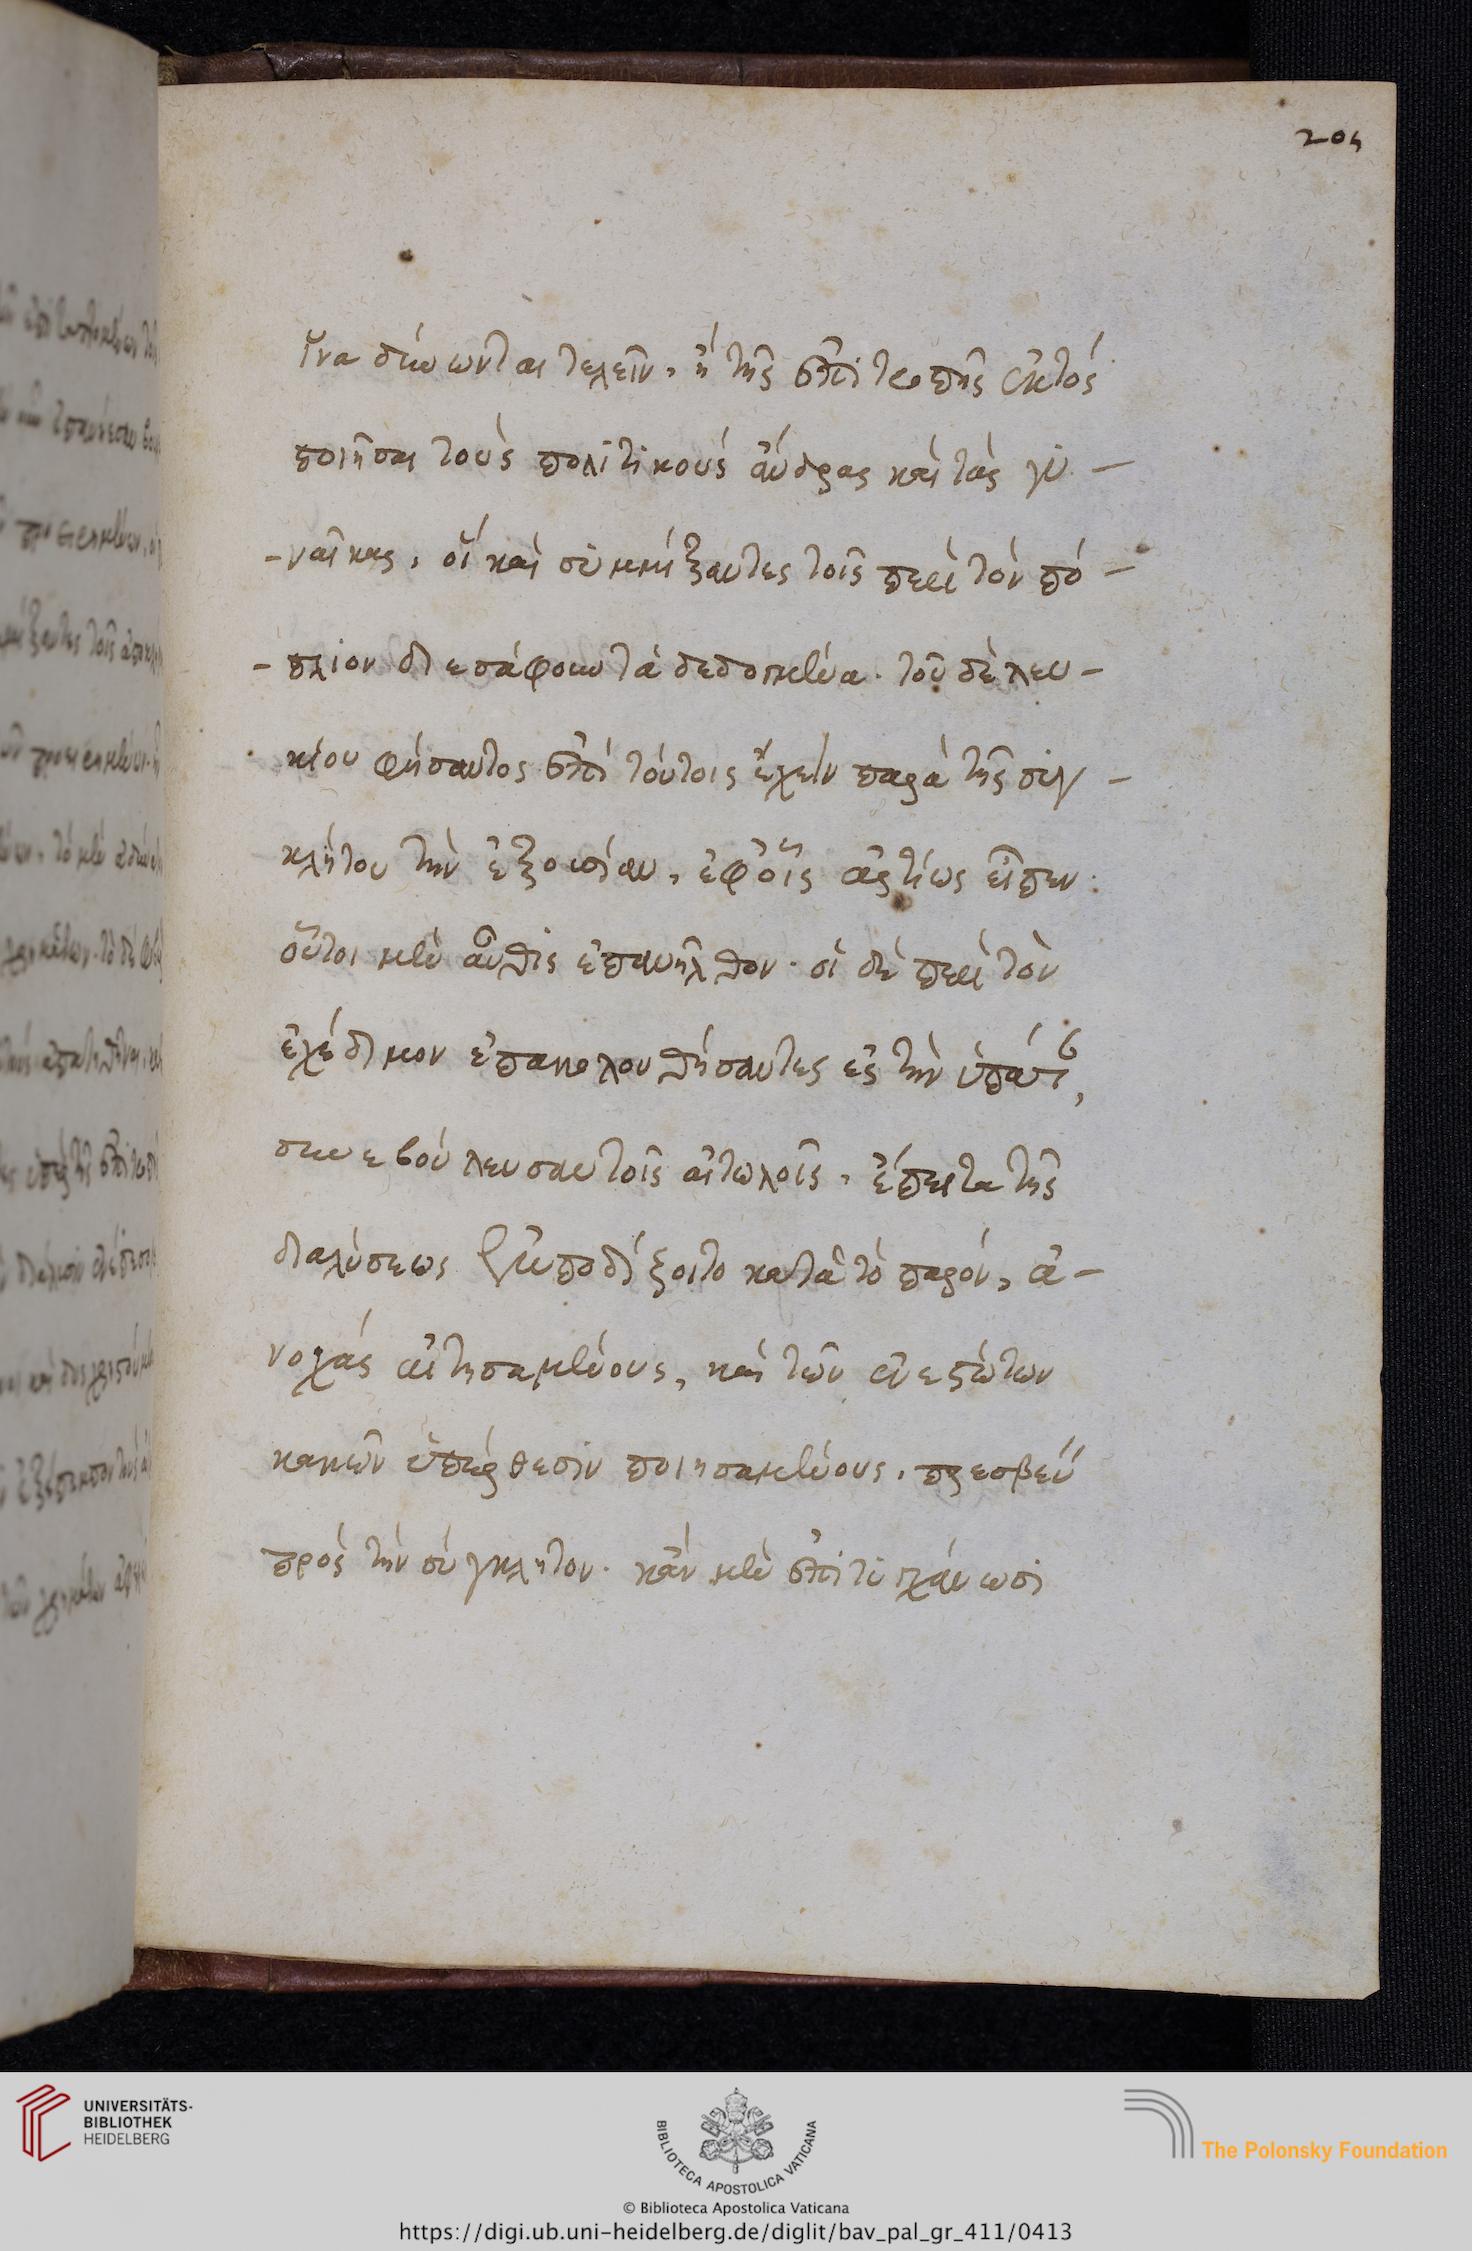 204
ἵνα δύνωνται τελεῖν, ἢ τῆς ἐπιτροπῆς ἐκτὸς
ποιῆσαι τοὺς πολιτικοὺς ἄνδρας καὶ τὰς γυ –
– ναῖκας, οἳ καὶ συμμίξαντες τοῖς περὶ τὸν πό –
– πλιον διεσάφουν τὰ δεδογμένα. τοῦ δὲ λευ –
κίου φήσαντος ἐπὶ τούτοις ἔχειν παρὰ τῆς συγ –
κλήτου τὴν ἐξουσίαν, ἐφ' οἷς ἀρτίως εἶπεν.
οὗτοι μὲν αὖθις ἐπανῆλθον. οἱ δὲ περὶ τὸν
ἐχέδημον ἐπακολουθήσαντες εἰς τὴν ὑπάτ,
συνεβούλευσαν τοῖς αἰτωλοῖς, ἔπειτα τῆς
διαλύσεως κατὰ τὸ παρόν, ἀ –
νοχὰς αἰτησαμένους, καὶ τῶν ἐνεστώτων
κακῶν ὑπέρθεσιν ποιησαμένους, πρεσβεύ
πρὸς τὴν σύγκλητον. κἂν μὲν ἐπιτυγχάνωσι
UNIVERSITÄTS-
BIBLIOTHEK
HEIDELBERG
BIBLIOTECA APOSTOLICA VATICANA
The Polonsky Foundation
© Biblioteca Apostolica Vaticana
https://digi.ub.uni-heidelberg.de/diglit/bav_pal_gr_411/0413